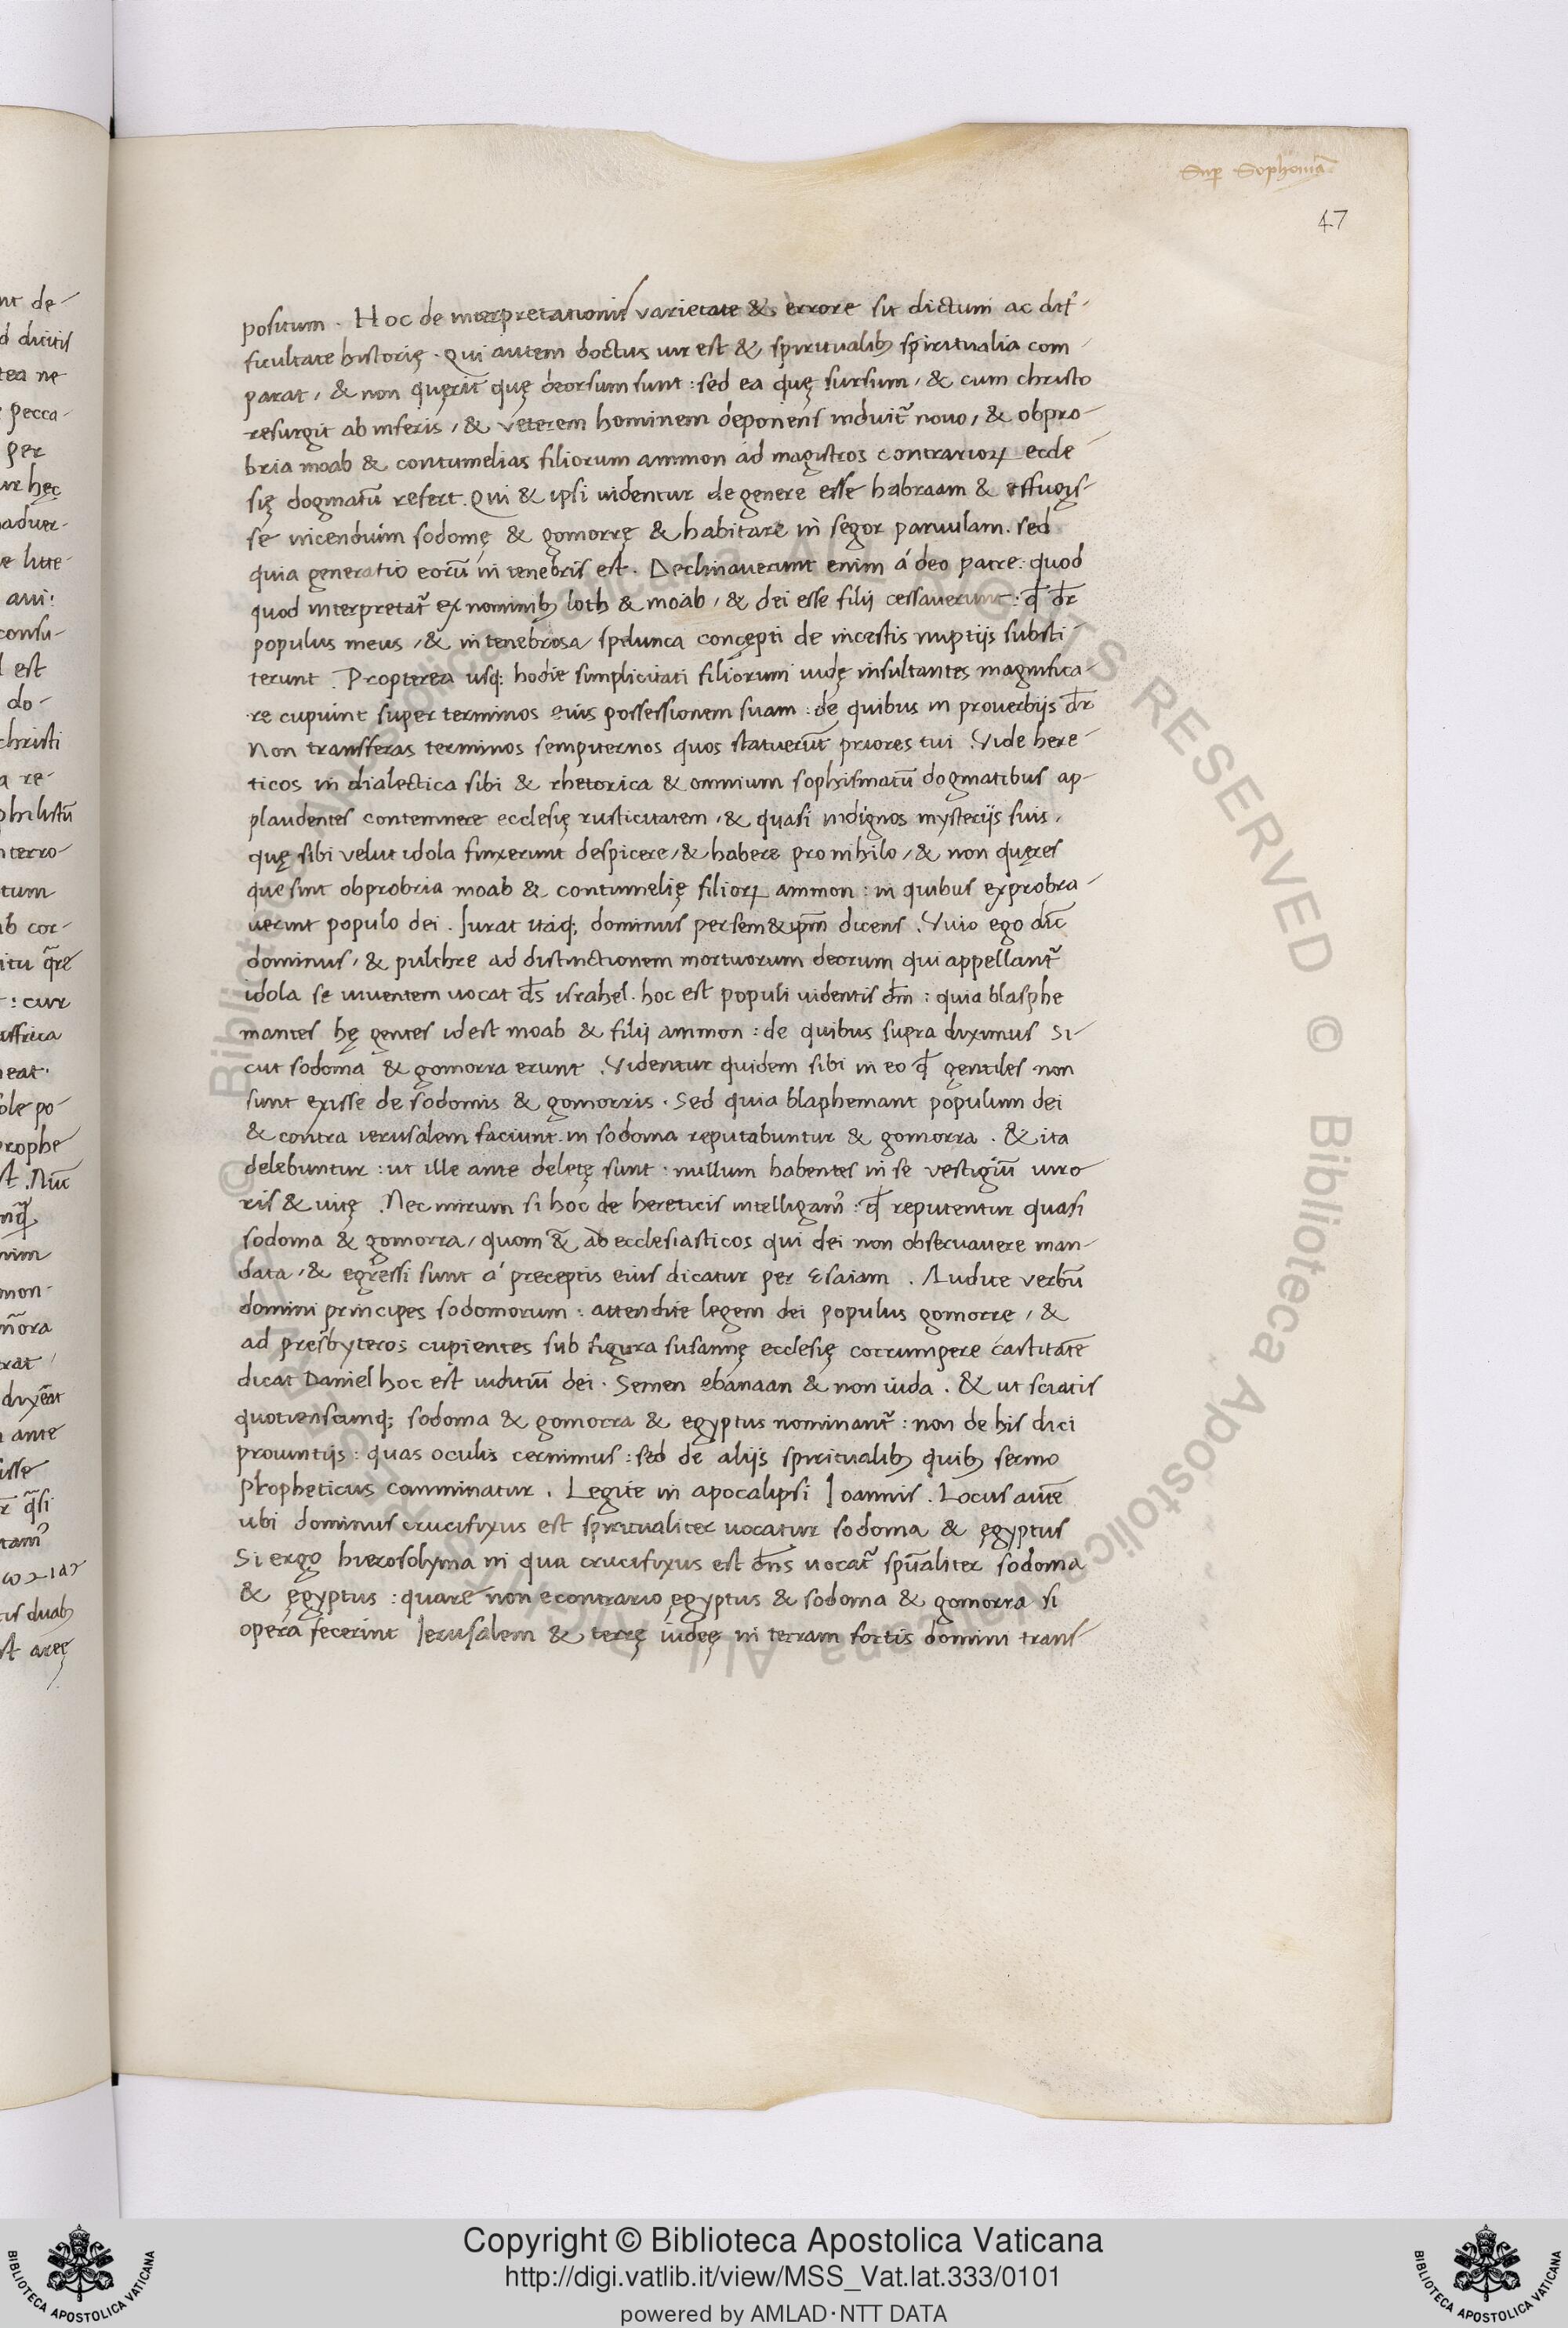 Sup Sophoniā
47
positum . Hoc de interpretationis varietate & errore sit dictum ac dif-
ficultate historię . Qui autem doctus uir est & spiritualibꝫ spiritualia com-
parat, & non quęrit quę deorsum sunt : sed ea quę sursum, & cum christo
resurgit ab inferis, & veterem hominem deponens induit᷑ nouo, & obpro-
bria moab & contumelias filiorum ammon ad magistros contrarioꝝ eccle
się dogmatū refert. Qui & ipsi uidentur de genere esse habraam & effugis-
se incendium sodomę & gomorrę & habitare in segor paruulam. sed
quia generatio eorū in tenebris est. Declinauerunt enim á deo patre: quod
quod interpretat᷑ ex nominibꝫ loth & moab, & dei esse filij cessauerunt: ꝙ dr̄
populus meus, & in tenebrosa spelunca concepti de incestis nuptijs substi-
terunt . Propterea usqꝫ hodie simplicitati filiorum iudę insultantes magnifica-
re cupiunt super terminos eius possessionem suam : de quibus in prouerbijs dr̄
Non transferas terminos sempiternos quos statuerūt priores tui . Vide here-
ticos in dialectica sibi & rhetorica & omnium sophismatū dogmatibus ap-
plaudentes contemnere ecclesię rusticitatem, & quasi indignos mysterijs suis,
quę sibi velut idola finxerunt despicere, & habere pro nihilo, & non quęres
que sint obprobria moab & contumelię filioꝝ ammon : in quibus exprobra-
uerunt populo dei . Jurat itaqꝫ dominus per sem&ipm̄ dicens . Viuo ego dīc
dominus, & pulchre ad distinctionem mortuorum deorum qui appellant᷑
idola se uiuentem uocat ds̄ israhel. hoc est populi uidentis dm̄ : quia blasphe
mantes hę gentes idest moab & filij ammon : de quibus supra diximus Si-
cut sodoma & gomorra erunt . Videntur quidem sibi in eo ꝙ gentiles non
sunt exisse de sodomis & gomorris . Sed quia blaphemant populum dei
& contra ierusalem faciunt. in sodoma reputabuntur & gomorra . & ita
delebuntur : ut ille ante deletę sunt : nullum habentes in se vestigiū uiro
ris & uitę . Nec mirum si hoc de hereticis intelligam᷒ : ꝙ reputentur quasi
sodoma & gomorra, quom & ad ecclesiasticos qui dei non obseruauere man-
data, & egressi sunt á preceptis eius dicatur per Esaiam . Audite verbū
domini principes sodomorum : attendite legem dei populus gomorre, &
ad presbyteros cupientes sub figura susannę ecclesię corrumpere castitatē
dicat Daniel hoc est iuditiū dei . Semen chanaan & non iuda . & ut sciatis
quotienscunqꝫ sodoma & gomorra & egyptus nominant᷑ : non de his dici
prouintijs : quas oculis cernimus : sed de alijs spiritualibꝫ quibꝫ sermo
propheticus comminatur . Legite in apocalipsi Joannis . Locus autē
ubi dominus crucifixus est spiritualiter uocatur sodoma & ęgyptus
Si ergo hierosolyma in qua crucifixus est dn̄s uocat᷑ spūaliter sodoma
& ęgyptus : quare non econtrario ęgyptus & sodoma & gomorra si
opera fecerint Jerusalem & terrę iudeę in terram fortis domini trans-
Copyright © Biblioteca Apostolica Vaticana
http://digi.vatlib.it/view/MSS_Vat.lat.333/0101
powered by AMLAD·NTT DATA